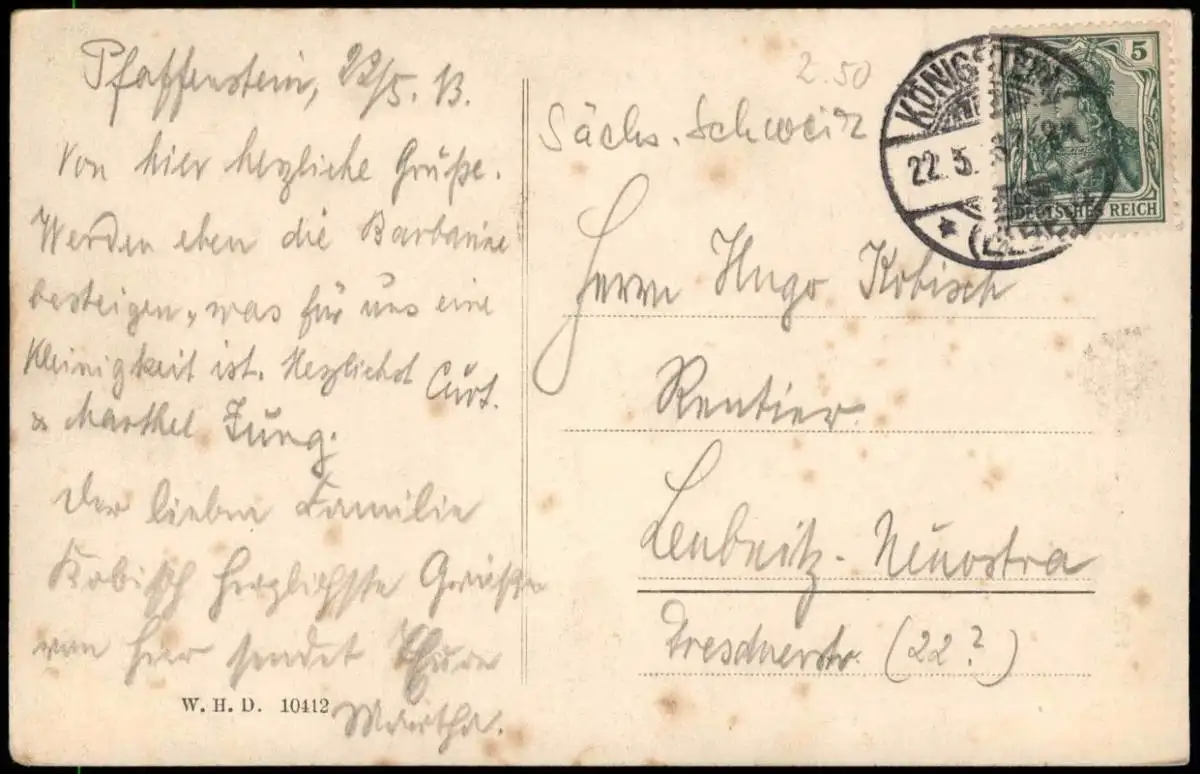 Pfaffenstein, 22/5. 13.
Von hier herzliche Grüße.
Werden eben die Barbarine
besteigen, was für uns eine
Kleinigkeit ist. Herzlichst Curt.
& Marthel Jung.
Der lieben Familie
Kobisch herzlichste Grüße
von hier sendet Eure
Martha.
W. H. D. 10412
2.50
Sächs. Schweiz
KÖNIGSTEIN
22. 5.
(ELBE)
5
DEUTSCHES REICH
Herrn Hugo Kobisch
Rentier
Leubnitz-Neuostra
Dresdnerstr. (22?)